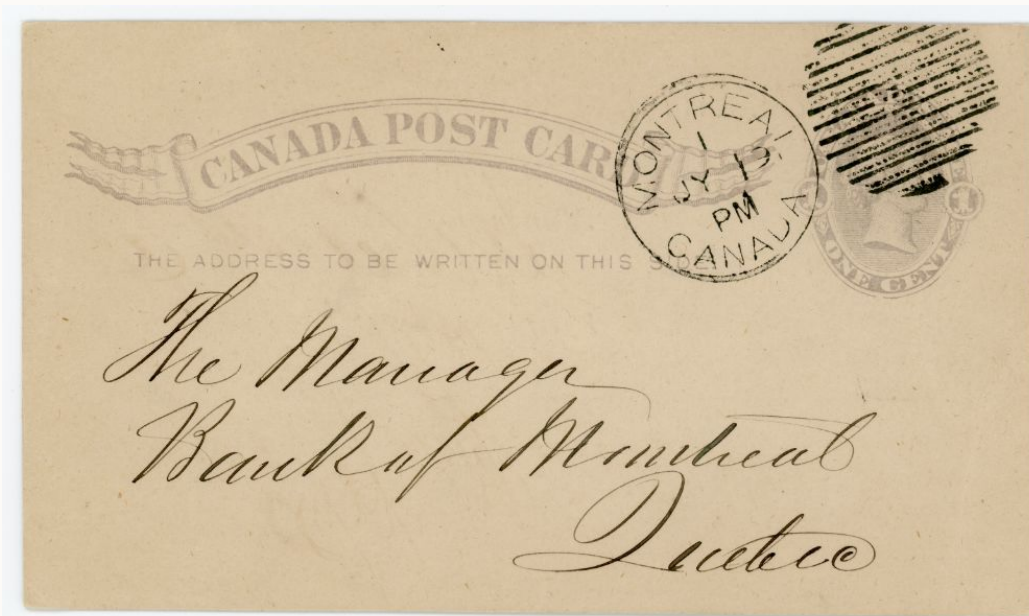 CANADA POST CARD
MONTREAL
1
JY 12
PM
CANADA
1 1
ONE CENT
THE ADDRESS TO BE WRITTEN ON THIS SIDE
The Manager
Bank of Montreal
Quebec